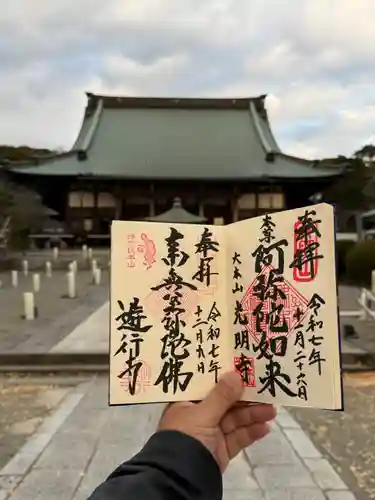 奉拝
本尊
阿弥陀如来
大本山 光明寺
令和七年
十一月二十六日
奉拝
令和七年
十二月六日
南無阿弥陀佛
遊行寺